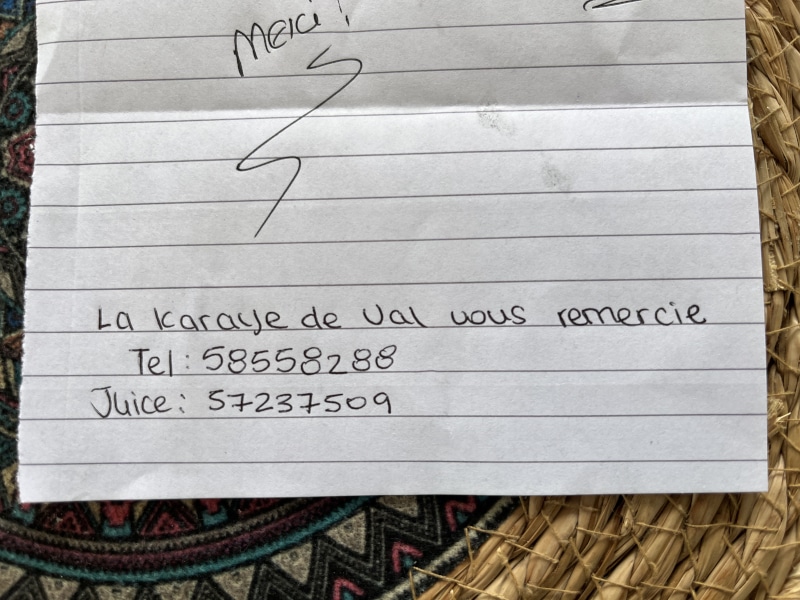 Merci !
La Karaye de Val vous remercie
Tel: 58558288
Juice: 57237509